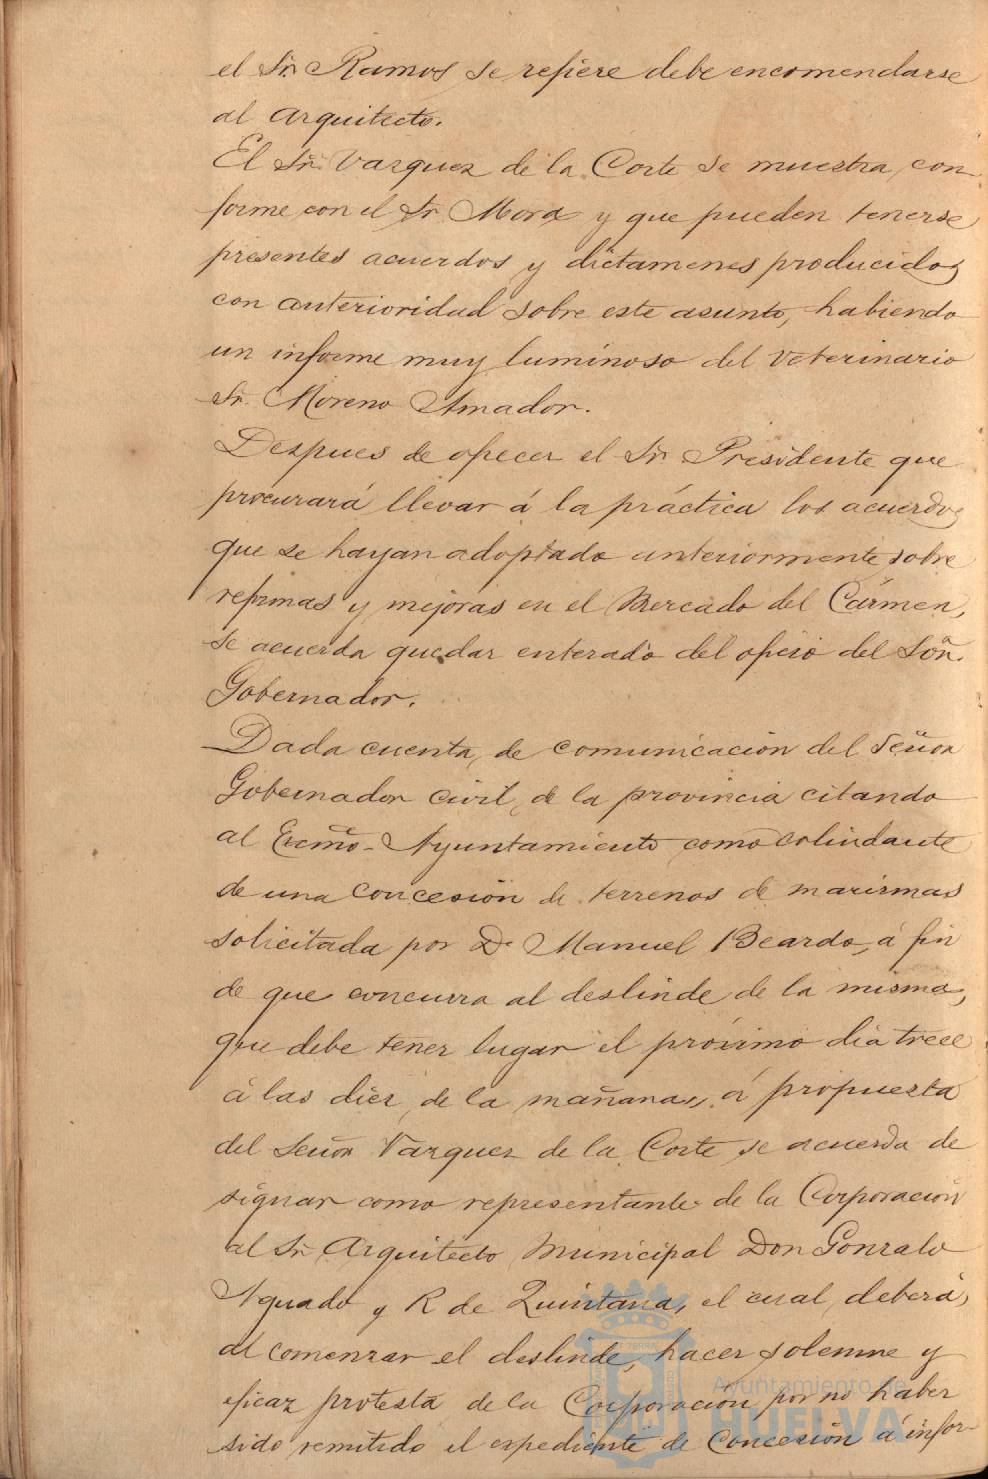 el Sr. Ramos se refiere debe encomendarse
al Arquitecto.
El Sr. Vazquez de la Corte se muestra con-
forme con el Sr. Mora y que pueden tenerse
presentes acuerdos y dictamenes producidos
con anterioridad sobre este asunto, habiendo
un informe muy luminoso del Veterinario
Sr. Moreno Amador.
Despues de ofrecer el Sr. Presidente que
procurará llevar á la práctica los acuerdos
que se hayan adoptado anteriormente sobre
reformas y mejoras en el Mercado del Cármen,
se acuerda quedar enterado del oficio del Sõr.
Gobernador.
Dada cuenta de comunicación del Señor
Gobernador civil de la provincia citando
al Excmõ. Ayuntamiento como colindante
de una concesión de terrenos de marismas
solicitada por Dn Manuel Beardo, á fin
de que concurra al deslinde de la misma,
que debe tener lugar el próximo dia trece
á las diez de la mañana, á propuesta
del Señor Vazquez de la Corte se acuerda de
signar como representante de la Corporación
al Sr. Arquitecto Municipal Don Gonzalo
Aguado y R de Quintana, el cual deberá,
al comenzar el deslinde, hacer solemne y
eficaz protesta de la Corporación por no haber
sido remitido el expediente de concesión á infor-
Ayuntamiento de
HUELVA